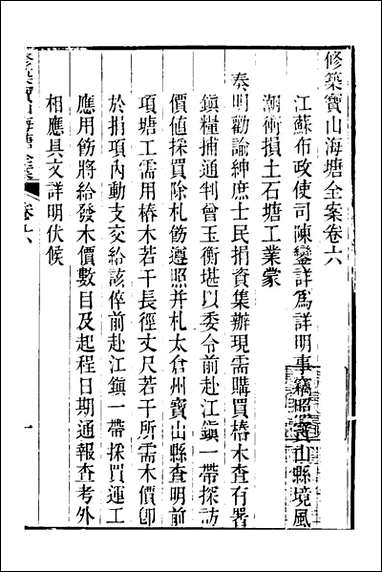 修築寶山海塘全案卷六
江蘇布政使司陳鑾詳爲詳明事竊照寶山縣境風
潮衝損土石塘工業蒙
奏明勸諭紳庶士民捐資集辦現需購買樁木查有署
鎮糧捕通判曾玉衡堪以委令前赴江鎮一帶探訪
價値採買除札飭遵照并札太倉州寶山縣查明前
項塘工需用樁木若干長徑丈尺若干所需木價卽
於捐項內動支交給該倅前赴江鎮一帶採買運工
應用飭將給發木價數目及起程日期通報查考外
相應具文詳明伏候
修築寶山海塘全案
卷六
一